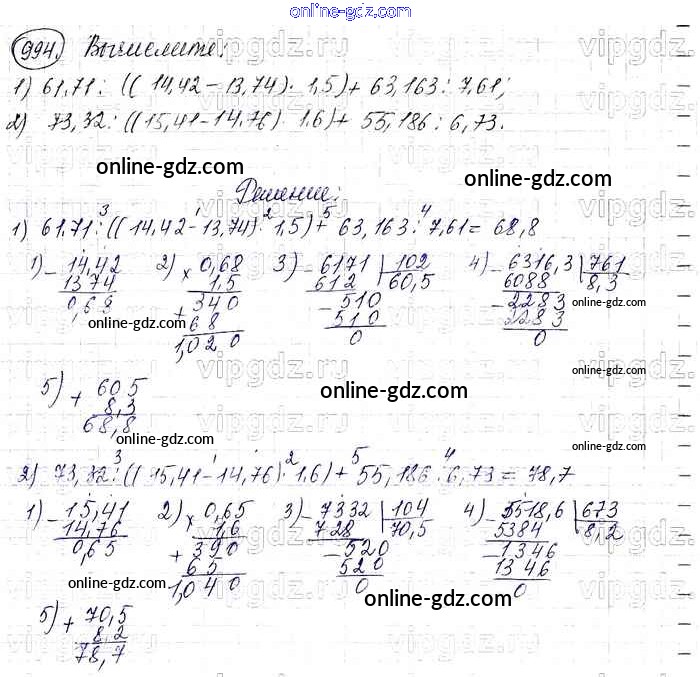 online-gdz.com
994. Вычислите:
1) 61,71 : ((14,42 - 13,74) · 1,5) + 63,163 : 7,61;
2) 73,32 : ((15,41 - 14,76) · 1,6) + 55,186 : 6,73.
online-gdz.com online-gdz.com
Решение:
3 1 2 5 4
1) 61,71 : ((14,42 - 13,74) · 1,5) + 63,163 : 7,61 = 68,8
1) - 14,42 2) × 0,68 3) - 6171 | 102 4) - 6316,3 | 761
13 74 1,5 612 60,5 6088 8,3
0,68 + 340 - 510 - 2283
68 510 2283
1,020 0 0 0
online-gdz.com online-gdz.com online-gdz.com
5) + 60 5
8,3
68,8
online-gdz.com online-gdz.com
3 1 2 5 4
2) 73,32 : ((15,41 - 14,76) · 1,6) + 55,186 : 6,73 = 78,7
1) - 15,41 2) × 0,65 3) - 7332 | 104 4) - 5518,6 | 673
14,76 1,6 728 70,5 5384 8,2
0,65 + 390 - 520 - 1346
65 520 1346
1,040 0 0
online-gdz.com online-gdz.com
5) + 70,5
8,2
78,7
online-gdz.com
vipgdz.ru